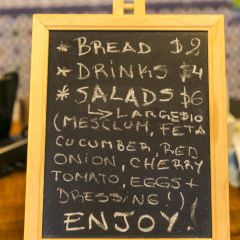 * BREAD $2
* DRINKS $4
* SALADS $6
→ LARGE $10
(MESCLUM, FETA
CUCUMBER, RED
ONION, CHERRY
TOMATO, EGGS +
DRESSING!)
ENJOY!